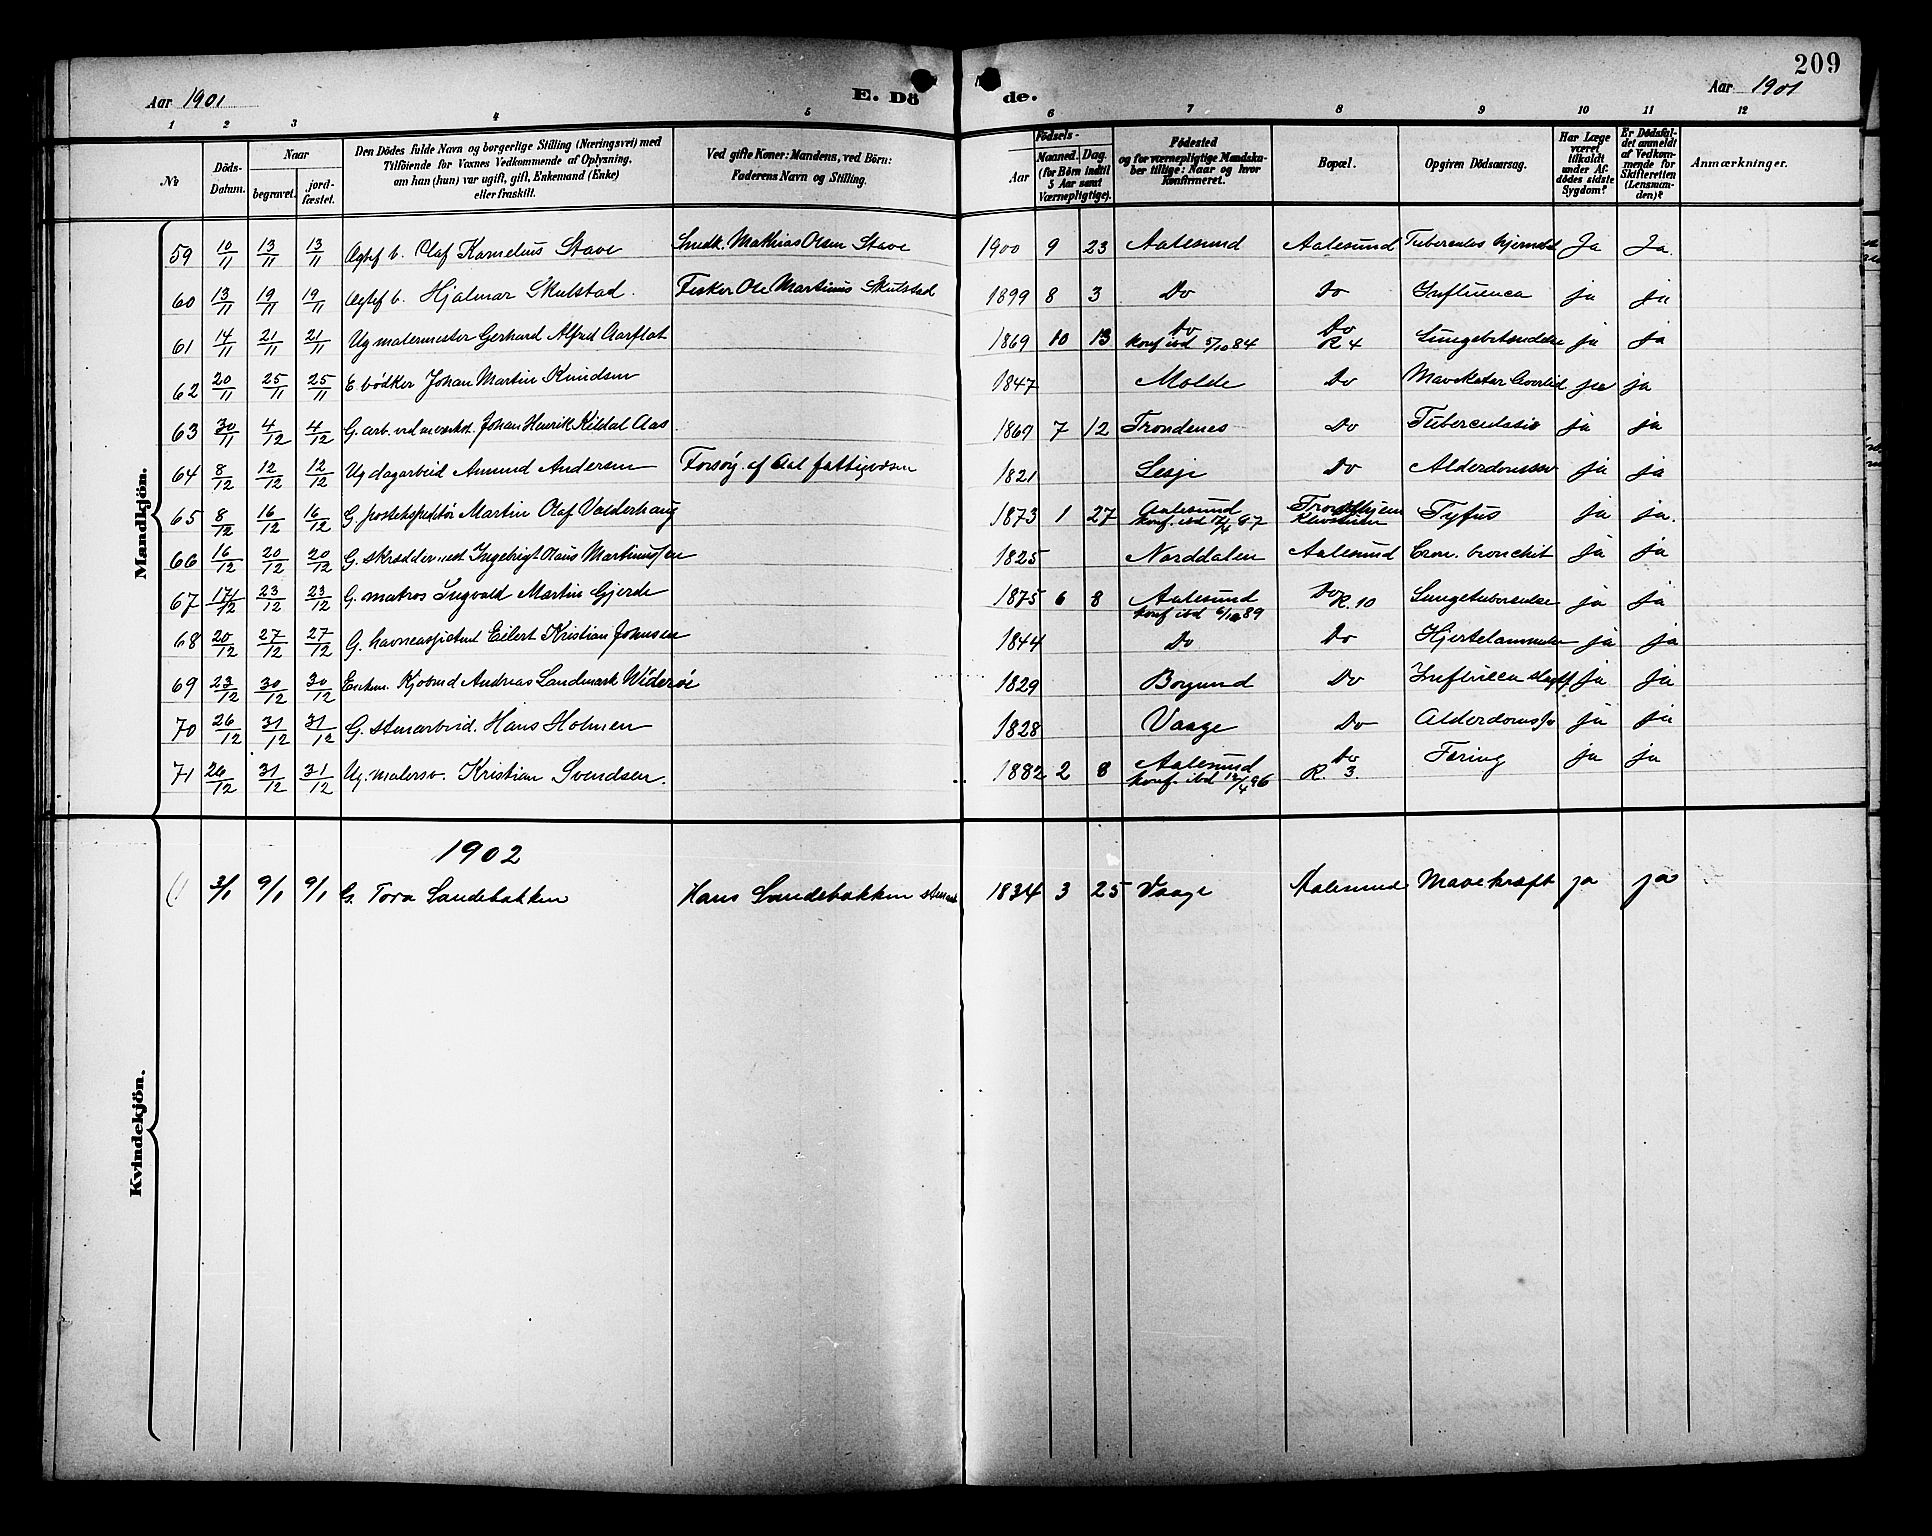 209
Aar 1901 E. Dö de. Aar 1901
1 2 3 4 5 6 7 8 9 10 11 12
№
Döds-Datum.
Naar
begravet.
jordfæstet.
Den Dödes fulde Navn og borgerlige Stilling (Næringsvei) med
Tilföiende for Voxnes Vedkommende af Oplysning,
om han (hun) var ugift, gift, Enkemand (Enke)
eller fraskilt.
Ved gifte Koner: Mandens, ved Börn:
Faderens Navn og Stilling.
Födsels-
Aar
Maaned. Dag.
(for Börn indtil
5 Aar samt
Værnepligtige).
Födested
og for værnepligtige Mandska-
ber tillige: Naar og hvor
Konfirmeret.
Bopæl.
Opgiven Dödsaarsag.
Har Læge
været
tilkaldt
under Af-
dödes sidste
Sygdom?
Er Dödsfal-
det anmeldt
af Vedkom-
mende for
Skifteretten
(Lensman-
den)?
Anmærkninger.
Mandkjön.
59 10/11 13/11 13/11 Ægtef b. Olaf Kornelius Stave Snedk. Mathias Olsen Stave 1900 9 23 Aalesund Aalesund Tuberculos hjerne Ja Ja.
60 13/11 19/11 19/11 Ægtef b. Hjalmar Skulstad. Fisker Ole Martinus Skulstad 1899 8 3 Do Do Influenca ja ja
61 14/11 21/11 21/11 Ug malermester Gerhard Alfred Aarflot 1869 10 13 Do konf ibd 5/10 84 Do R 4 Lungebetændelse ja ja
62 20/11 25/11 25/11 E bödker Johan Martin Knudsen 1847 Molde Do Mavekatar ja ja
63 30/11 4/12 4/12 G. arb. ved Johan Henrik Kildal Aas 1869 7 12 Trondenes Do Tuberculosis ja ja
64 8/12 12/12 12/12 Ug dagarbeid Amund Andersen Forsörg. af Aal fattigvæsen 1821 Lesje Do Alderdomssv ja ja
65 8/12 16/12 16/12 G. postekspeditör Martin Olaf Valderhaug 1873 1 27 Aalesund konf. ibd 87 Trondhjem Tyfus ja ja.
66 16/12 20/12 20/12 G. skrædder Ingebrigt Claus Martinussen 1825 Norddalen Aalesund Cron. bronchit ja ja
67 17/12 23/12 23/12 G. matros Ingvald Martin Gjerde 1875 6 8 Aalesund konf ibd 6/10 89 Do R. 10 Lungetuberculse ja ja
68 20/12 27/12 27/12 G. havneassistent Eilert Kristian Johnsen 1844 Do Do Hjertelammelse ja ja
69 23/12 30/12 30/12 Enkem. Kjöbmd Andreas Landmark Wideröe 1829 Borgund Do Influenca ja ja
70 26/12 31/12 31/12 G. stenarbeid. Hans Holmen 1828 Vaage Do Alderdomssv ja ja
71 26/12 31/12 31/12 Ug. malersv. Kristian Svendsen. 1882 2 8 Aalesund konf. ibd 12/4 96 Do R. 3. Tæring ja ja
Kvindekjön.
1902
1 3/1 9/1 9/1 G. Tora Sandebakken Hans Sandebakken 1834 3 25 Vaage Aalesund Mavekræft ja ja